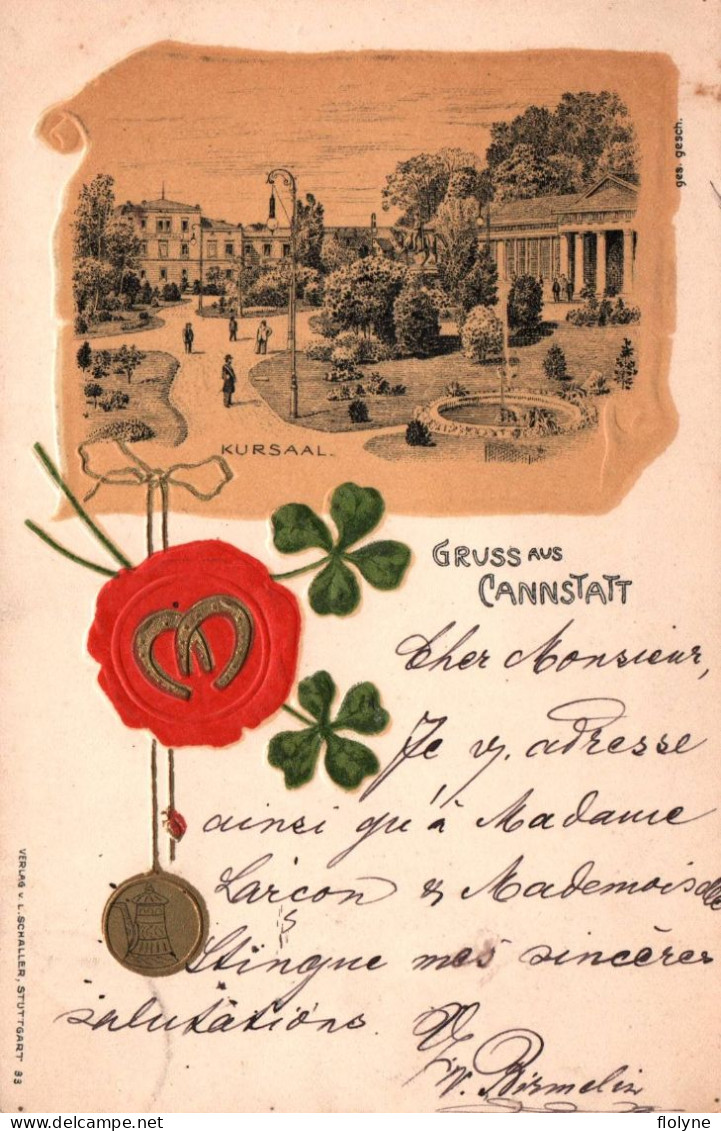 ges. gesch.
KURSAAL.
GRUSS AUS
CANNSTATT
Cher Monsieur,
Je v. adresse
ainsi qu'à Madame
Larçon & Mademoiselle
Stingue mes sincères
salutations.
Birmelin
VERLAG v. L. SCHALLER, STUTTGART 33
© flolyne